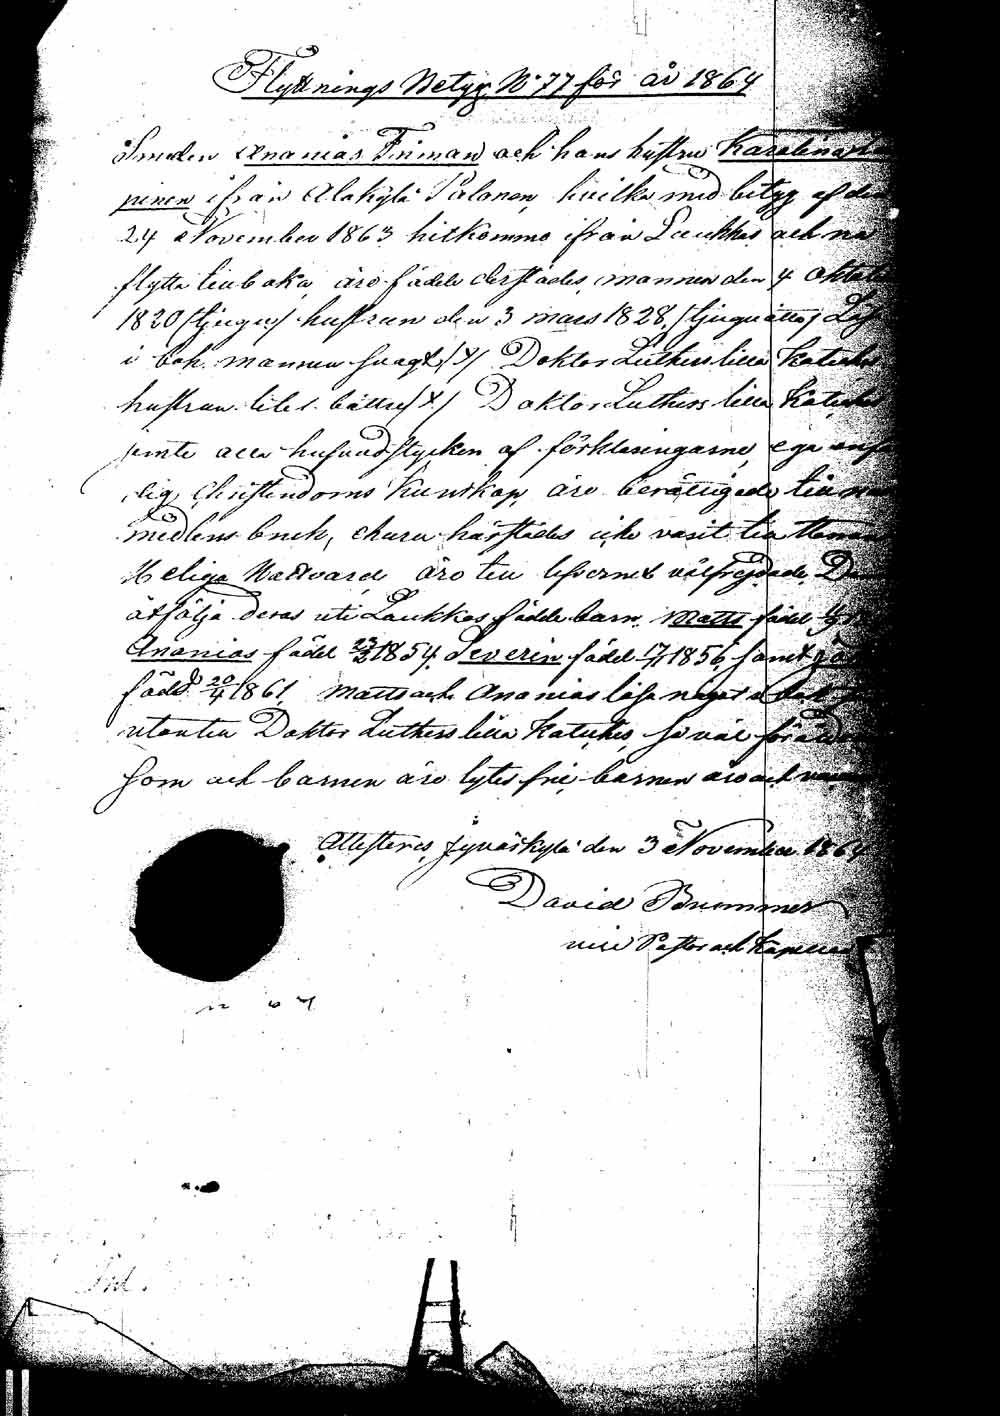 Flyttnings Betyg N:o 77 för år 1864
Smeden Ananias Friman och hans hustru Karolina
pinen ifrån Alakylä Palanen, hvilka med betyg af den
24 November 1863 hitkommo ifrån Laukkas och nu
flytta tillbaka, äro födde derstädes, mannen den 4 Oktober
1820 /tjugu/ hustrun den 3 mars 1828, /tjuguåtta/ Läsa
i bok mannen svagt /x/ Doktor Luthers lilla Katekes
hustrun litet bättre /x/ Doktor Luthers lilla Katekes
jemte alla hufvudstycken af förklaringarne, ega
lig Christendoms Kunskap, äro berättigade till
medlens bruk, ehuru härstädes icke varit till
Heliga Nattvard äro till lefvernet välfrejdade. Dem
åtfölja deras uti Laukkas födde barn. Matts född
Ananias född 23/2 1854, Severin född 17/1 1856, samt
född 20/4 1861. Matts och Ananias läsa något i bok
utantill Doktor Luthers lilla Katekes, så väl föräldrarne
som och barnen äro lytes frie, barnen äro och
Attesteres Jyväskylä den 3 November 1864
David Brummer
vice Pastor och Kapellan